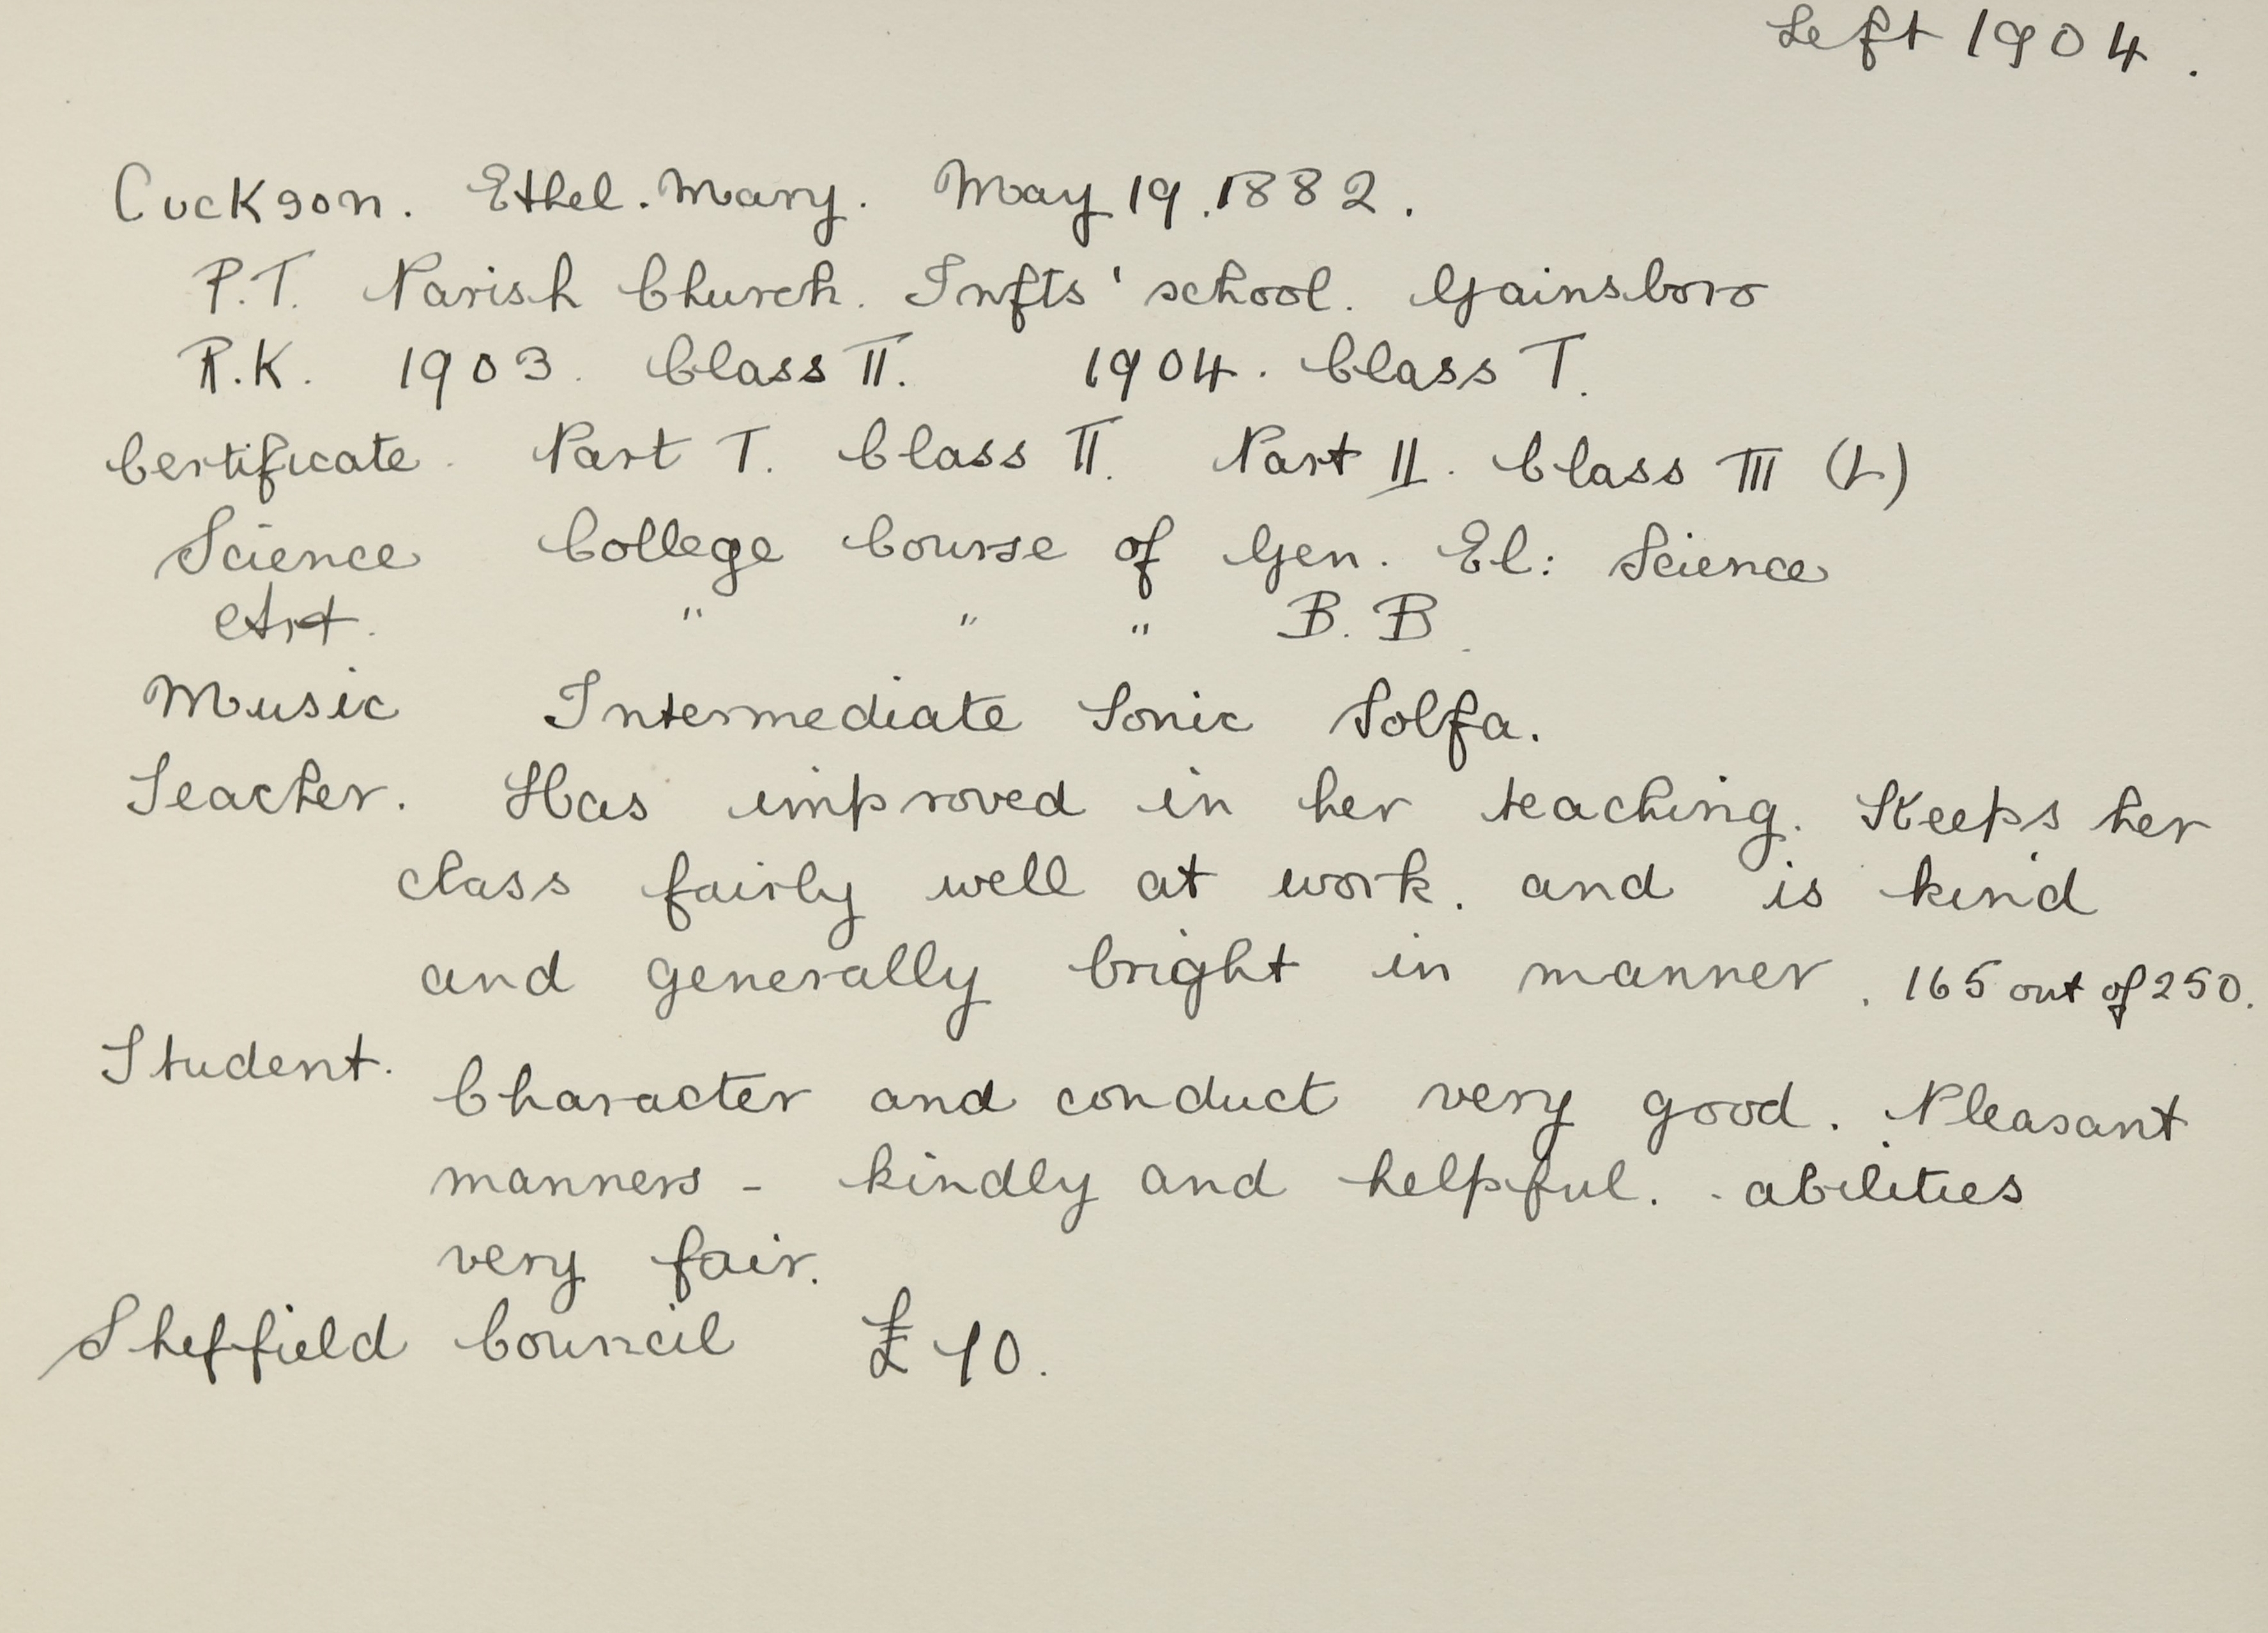 Left 1904.
Cuckson. Ethel. Mary. May 19. 1882.
P.T. Parish Church. Infts' school. Gainsboro
R.K. 1903. Class II. 1904. Class I.
Certificate. Part I. Class II. Part II. Class III (L)
Science College Course of Gen. El: Science
Art. " " " B. B.
Music Intermediate Tonic Solfa.
Teacher. Has improved in her teaching. Keeps her
class fairly well at work. and is kind
and generally bright in manner. 165 out of 250.
Student.
Character and conduct very good. Pleasant
manners - kindly and helpful. - abilities
very fair.
Sheffield Council £40.